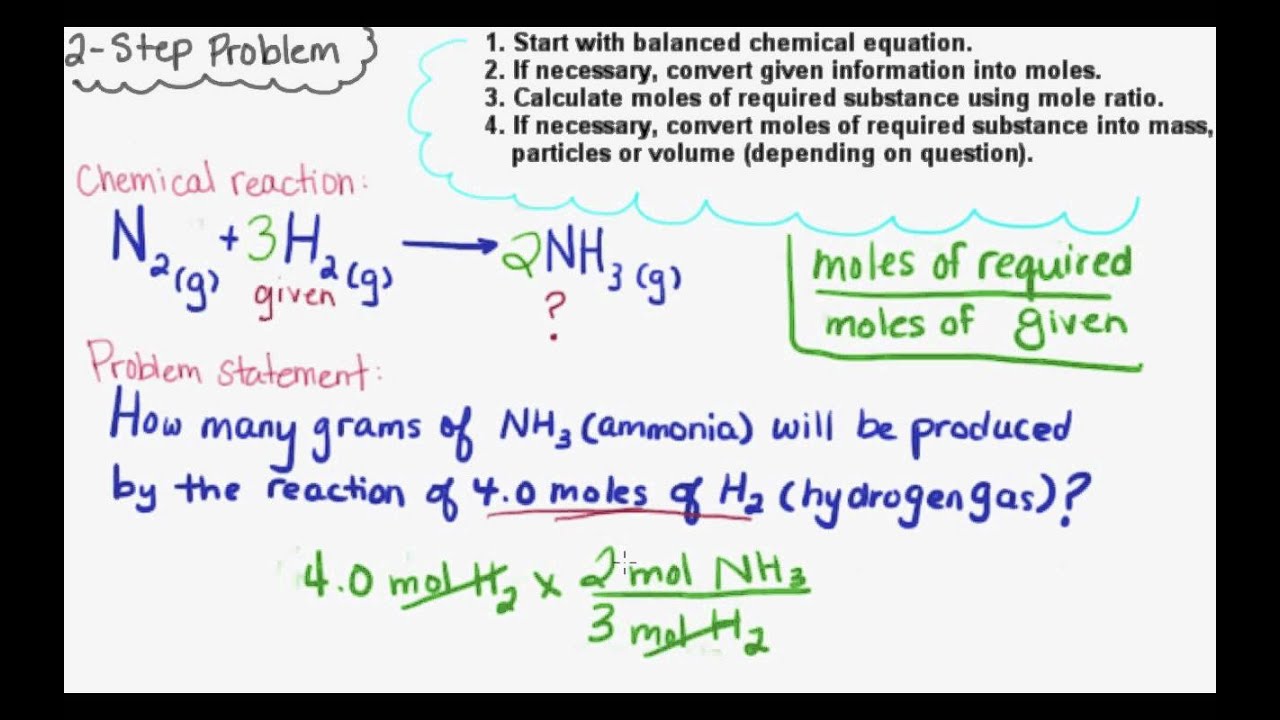 2-Step Problem
1. Start with balanced chemical equation.
2. If necessary, convert given information into moles.
3. Calculate moles of required substance using mole ratio.
4. If necessary, convert moles of required substance into mass,
particles or volume (depending on question).
Chemical reaction:
N₂(g) + 3H₂(g) → 2NH₃(g)
given ?
moles of required
moles of given
Problem statement:
How many grams of NH₃ (ammonia) will be produced
by the reaction of 4.0 moles of H₂ (hydrogen gas)?
4.0 mol H₂ x 2 mol NH₃
3 mol H₂